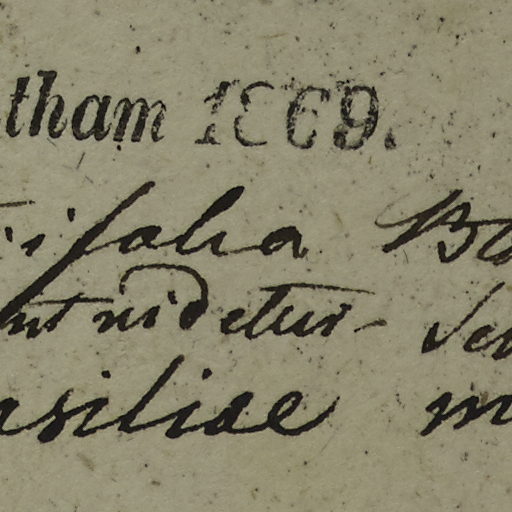 tham 1869.
trifolia Bth
ut videtur
asiliae m